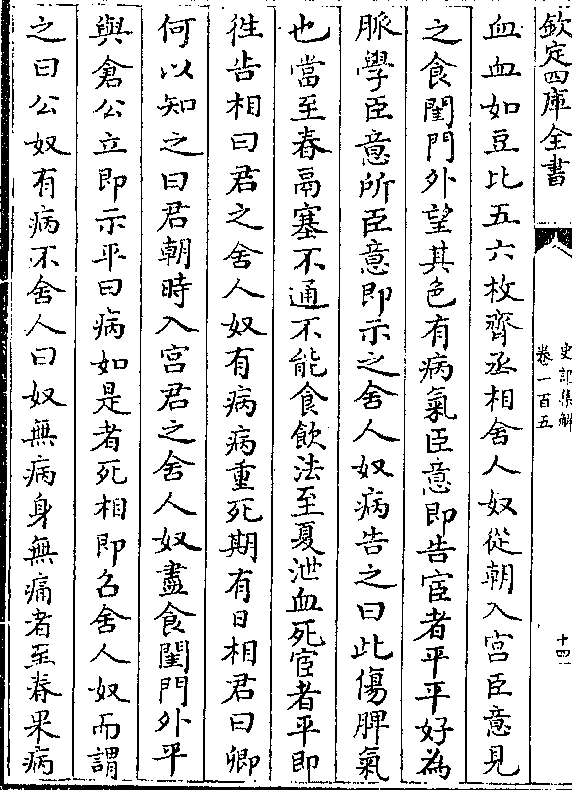 欽定四庫全書
史記集解
卷一百五
十四
血血如豆比五六枚齊丞相舍人奴從朝入宮臣意見
之食閨門外望其色有病氣臣意即告宦者平平好為
脈學臣意所臣意即示之舍人奴病告之曰此傷脾氣
也當至春鬲塞不通不能食飲法至夏泄血死宦者平即
徃告相曰君之舍人奴有病病重死期有日相君曰卿
何以知之曰君朝時入宮君之舍人奴盡食閨門外平
與倉公立即示平曰病如是者死相即召舍人奴而謂
之曰公奴有病不舍人曰奴無病身無痛者至春果病